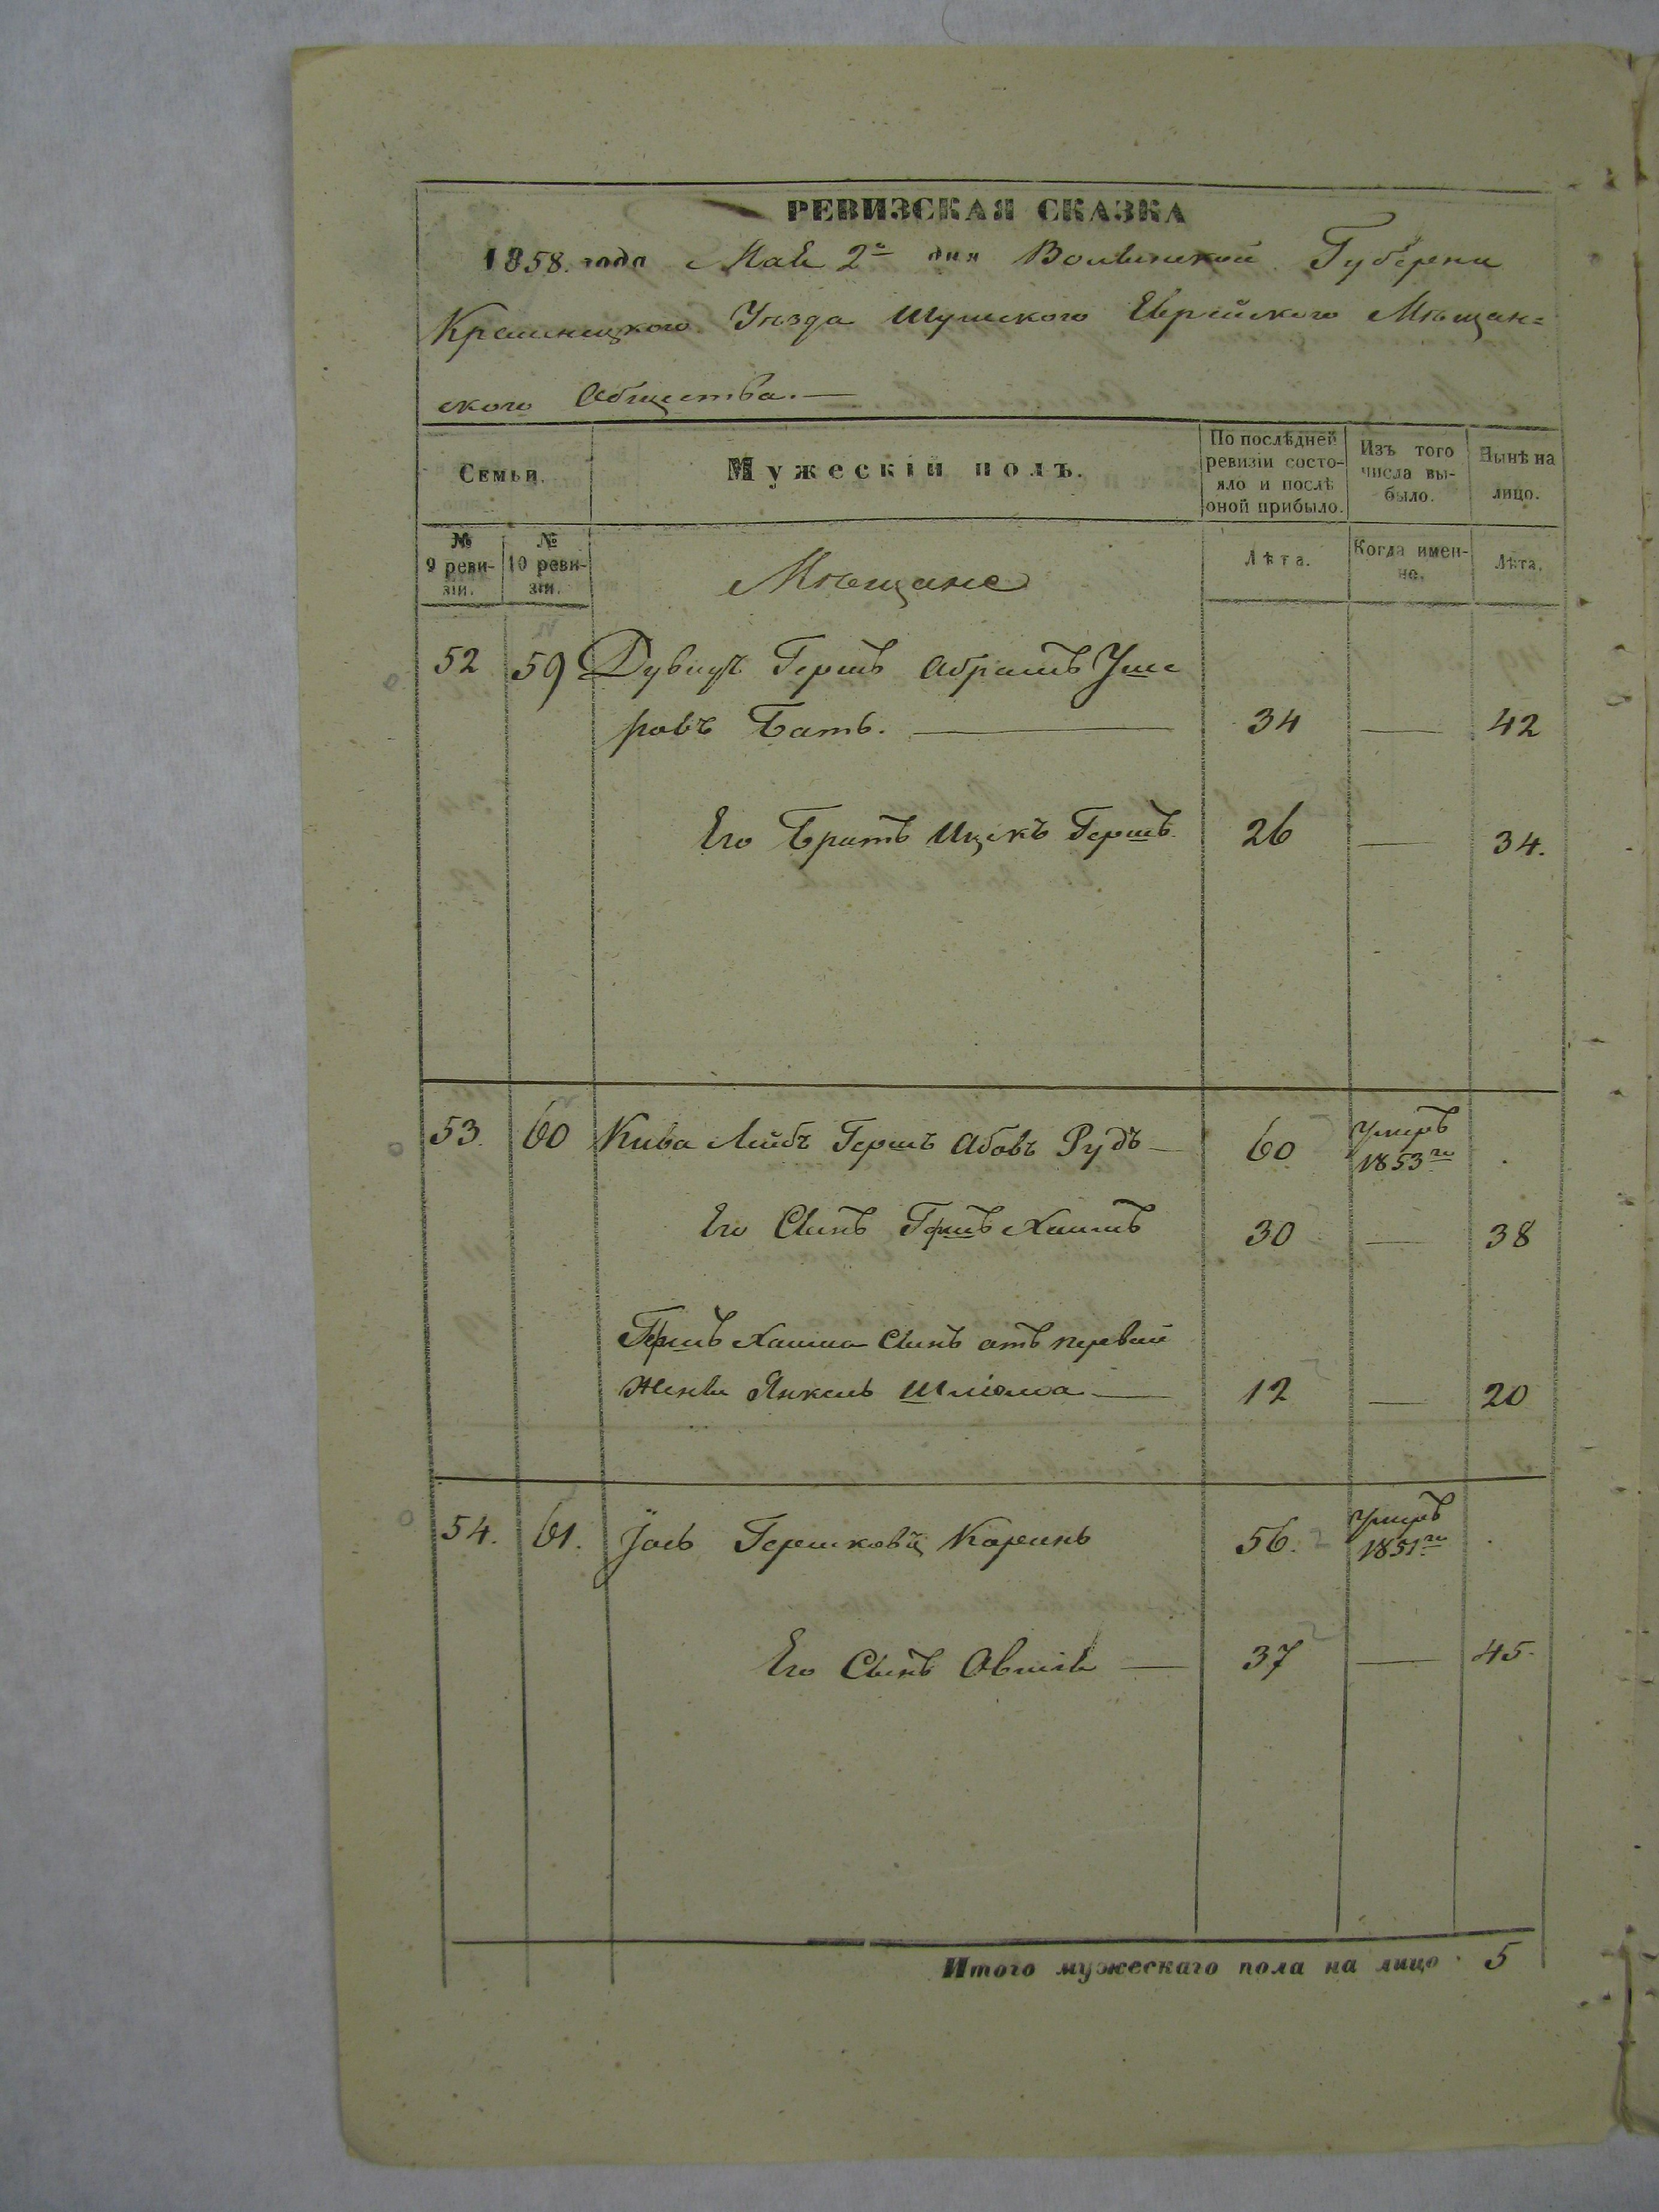 РЕВИЗСКАЯ СКАЗКА
1858. года Мая 2го дня Волынской Губерни
Кременецкого Уѣзда Шумского Еврейского Мѣщан=
ского Общества.—
Семьи.
Мужескій полъ.
По послѣдней ревизіи состо-
яло и послѣ оной прибыло.
Изъ того числа вы-
было.
Нынѣ на лицо.
№ 9 реви-
зіи.
№ 10 реви-
зіи.
Мѣщане
Лѣта.
Когда имен-
но.
Лѣта.
52 59 Гершъ Абрамъ
ровъ 34 — 42
Его Братъ Ицекъ Гершъ 26 — 34.
53. 60 Кива Лейбъ Гершъ Абовъ Рудъ — 60 Умеръ
1853го
Его Сынъ Гершъ Хаимъ 30 — 38
Гершъ Хаима Сынъ отъ первой
Жены Янкель Шліома — 12 — 20
54. 61. Іось Гершковъ 56. Умеръ
1851го
Его Сынъ — 37 — 45.
Итого мужескаго пола на лицо 5